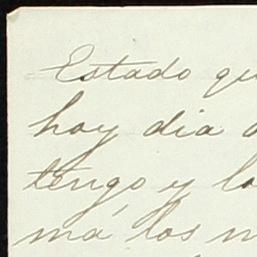 Estado qu
hoy dia d
tengo y lo
má los n